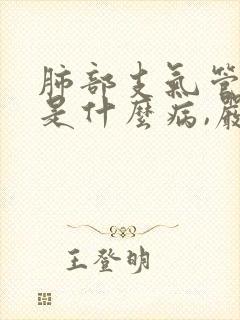 肺部支气管
是什麼病,嚴
王登明